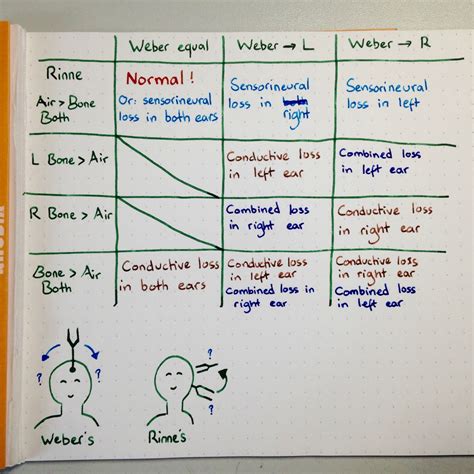 Weber equal
Weber → L
Weber → R
Rinne
Air > Bone
Both
Normal!
Or: sensorineural
loss in both ears
Sensorineural
loss in
right
Sensorineural
loss in left
L Bone > Air
Conductive loss
in left ear
Combined loss
in left ear
R Bone > Air
Combined loss
in right ear
Conductive loss
in right ear
Bone > Air
Both
Conductive loss
in both ears
Conductive loss
in left ear
Combined loss in
right ear
Conductive loss
in right ear
Combined loss
in left ear
?
?
?
?
Weber's
Rinne's